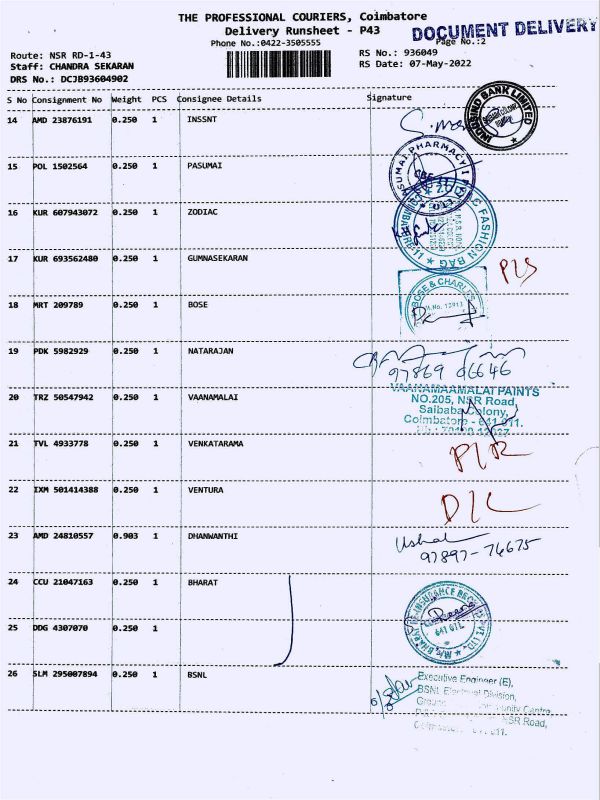 THE PROFESSIONAL COURIERS, Coimbatore
Delivery Runsheet - P43
DOCUMENT DELIVERY
Phone No.:0422-3505555
Page No.:2
Route: NSR RD-1-43
RS No.: 936049
Staff: CHANDRA SEKARAN
RS Date: 07-May-2022
DRS No.: DCJB93604902
S No Consignment No Weight PCS Consignee Details Signature
14 AMD 23876191 0.250 1 INSSNT
INDUSIND BANK LIMITED
15 POL 1502564 0.250 1 PASUMAI
16 KUR 607943072 0.250 1 ZODIAC
FASHION BAG
17 KUR 693562480 0.250 1 GUMNASEKARAN
P/S
18 MRT 209789 0.250 1 BOSE
BOSE & CHARLES
19 PDK 5982929 0.250 1 NATARAJAN
97869 06646
20 TRZ 50547942 0.250 1 VAANAMALAI
VAANAMAAMALAI PAINTS
NO.205, NSR Road,
Saibaba Colony,
Coimbatore - 641 011.
21 TVL 4933778 0.250 1 VENKATARAMA
P/R
22 IXM 501414388 0.250 1 VENTURA
D/L
23 AMD 24810557 0.903 1 DHANWANTHI
Usha
97897-76675
24 CCU 21047163 0.250 1 BHARAT
25 DDG 4307070 0.250 1
26 SLM 295007894 0.250 1 BSNL
Executive Engineer (E),
BSNL Electrical Division,
NSR Road,